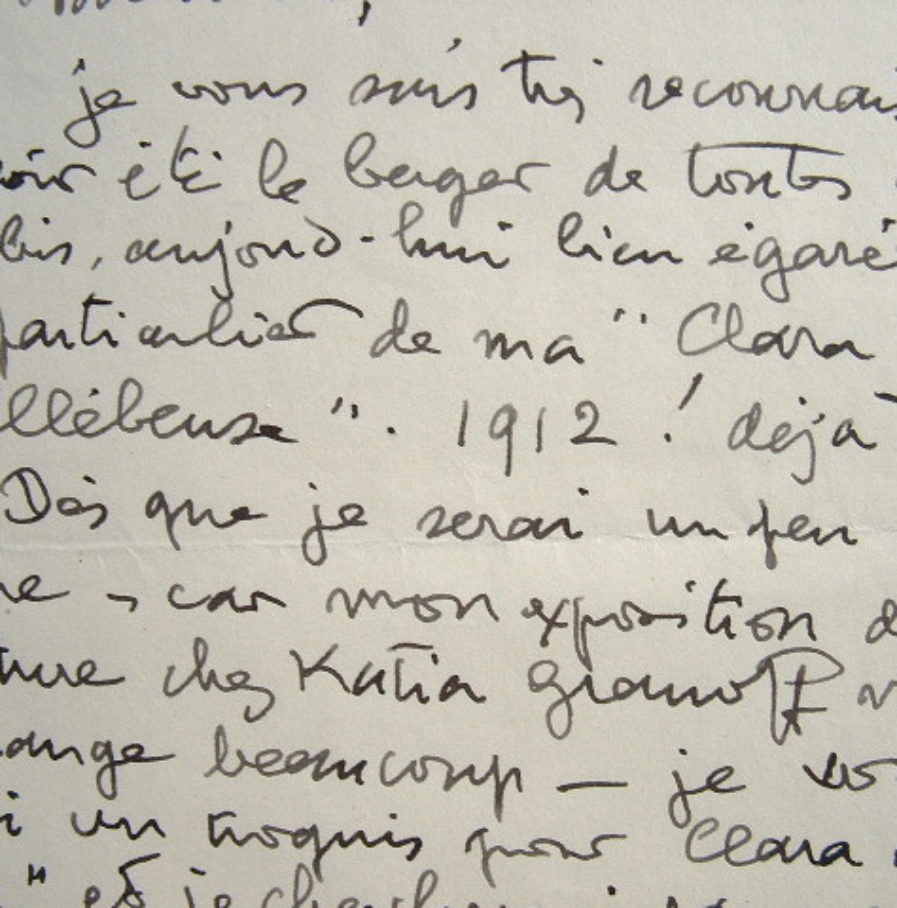 je vous suis très reconnais
oir été le berger de toutes
bis, aujourd-hui bien égaré
particulier de ma "Clara
llébeuse". 1912 ! déjà
Dès que je serai un peu
re - car mon exposition d
ture chez Katia Granoff
ange beaucoup — je
i un croquis pour Clara
" et je